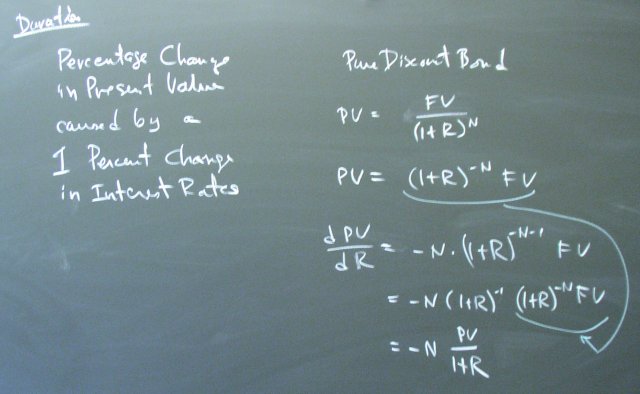 Duration
Percentage Change
in Present Value
caused by a
1 Percent Change
in Interest Rates
Pure Discount Bond
PV = FV / (1+R)^N
PV = (1+R)^-N FV
dPV / dR = -N · (1+R)^-N-1 FV
= -N (1+R)^-1 (1+R)^-N FV
= -N PV / 1+R